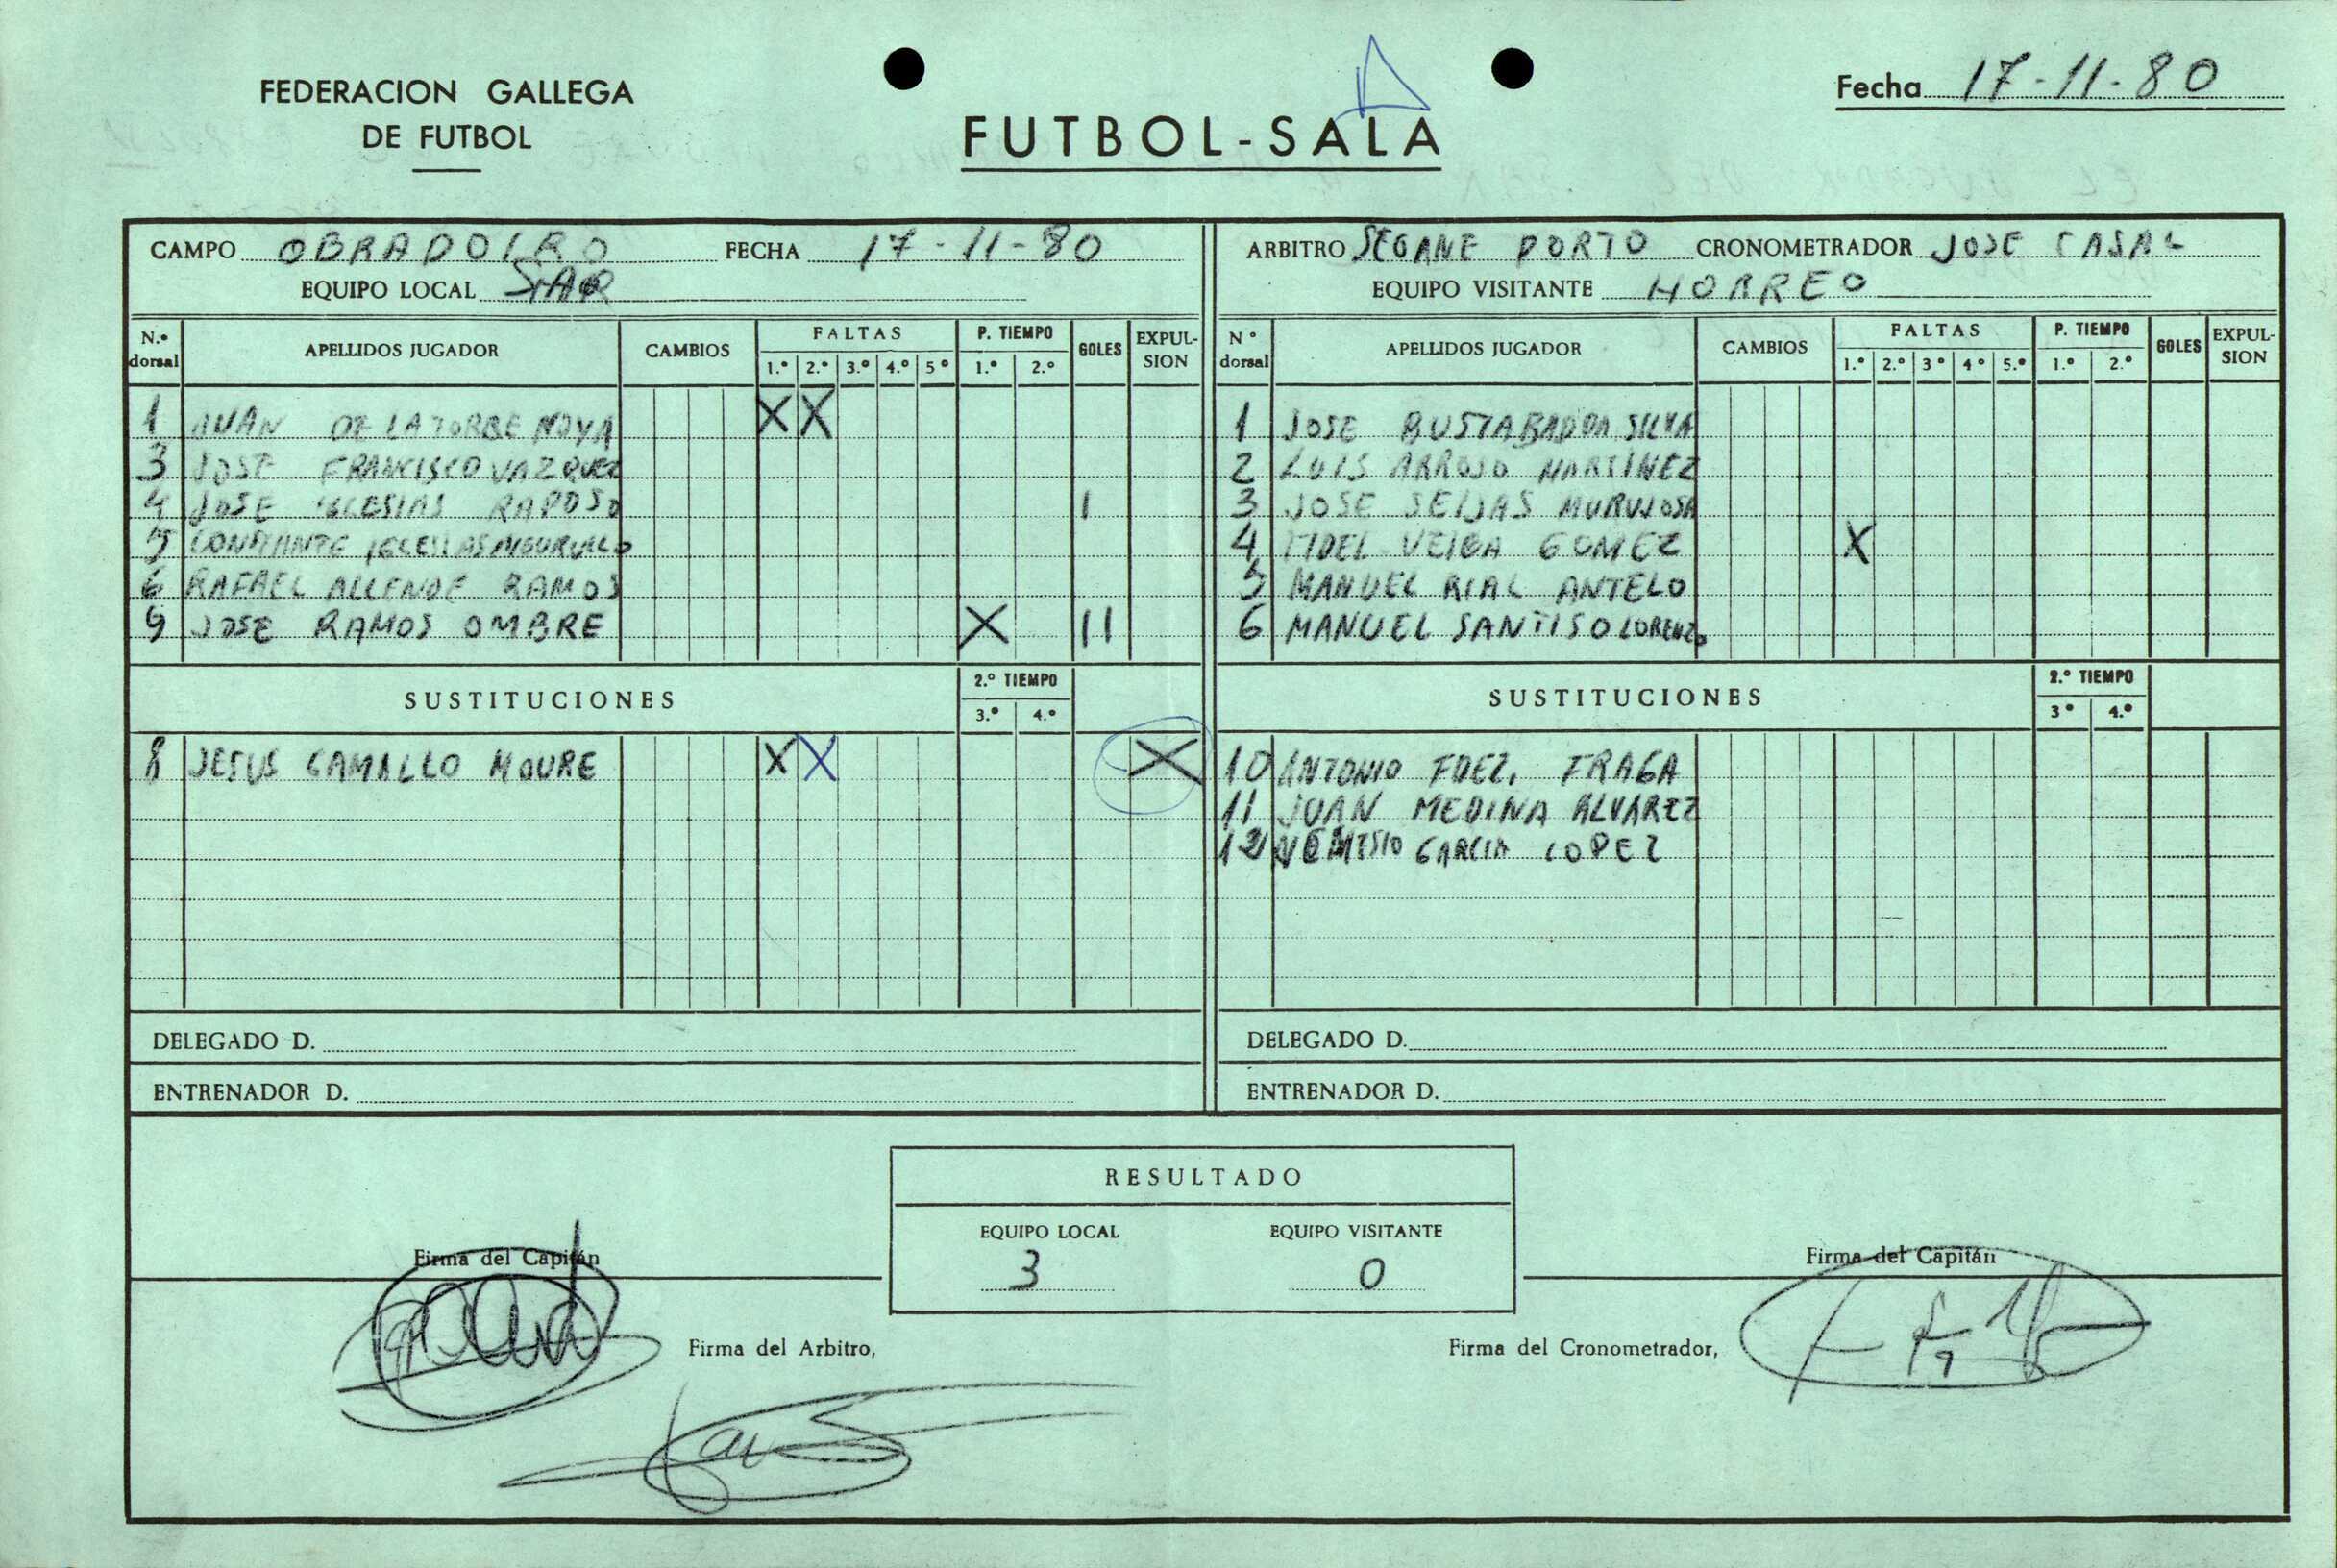 FEDERACION GALLEGA
DE FUTBOL
FUTBOL-SALA
Fecha 17-11-80
CAMPO OBRADOIRO FECHA 17-11-80
EQUIPO LOCAL SAR
N.º dorsal APELLIDOS JUGADOR CAMBIOS FALTAS 1.º 2.º 3.º 4.º 5º P. TIEMPO 1.º 2.º GOLES EXPULSION
1 JUAN DE LA TORRE NOYA X X
3 JOSE FRANCISCO VAZQUEZ
4 JOSE IGLESIAS RAPOSO I
5 IGLESIAS
6 RAFAEL ALLENDE RAMOS
9 JOSE RAMOS OMBRE X II
SUSTITUCIONES 2.º TIEMPO 3.º 4.º
8 JESUS GAMALLO MOURE X X X
DELEGADO D.
ENTRENADOR D.
ARBITRO SEOANE PORTO CRONOMETRADOR JOSE CASAL
EQUIPO VISITANTE HORREO
Nº dorsal APELLIDOS JUGADOR CAMBIOS FALTAS 1.º 2.º 3º 4º 5.º P. TIEMPO 1.º 2.º GOLES EXPULSION
1 JOSE BUSTABAD SILVA
2 LUIS ARROJO MARTINEZ
3 JOSE SEIJAS
4 FIDEL VEIGA GOMEZ X
5 MANUEL RIAL ANTELO
6 MANUEL SANTISO LORENZO
SUSTITUCIONES 2.º TIEMPO 3º 4.º
10 ANTONIO FDEZ. FRAGA
11 JUAN MEDINA ALVAREZ
12 NEMESIO GARCIA LOPEZ
DELEGADO D.
ENTRENADOR D.
RESULTADO
EQUIPO LOCAL EQUIPO VISITANTE
3 0
Firma del Capitán
Firma del Capitán
Firma del Arbitro,
Firma del Cronometrador,